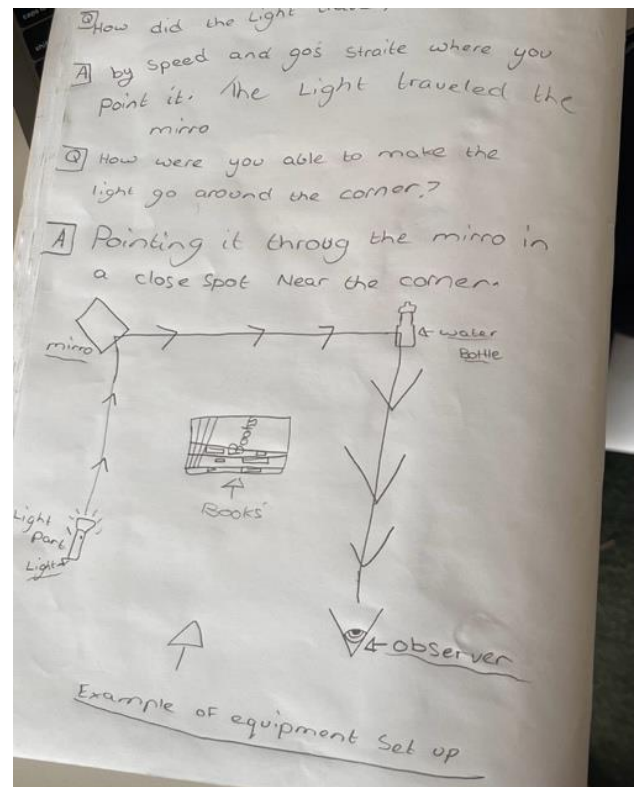 Q How did the Light
A by speed and gos straite where you
Point it. The Light traveled the
mirro
Q How were you able to make the
light go around the corner?
A Pointing it throug the mirro in
a close spot Near the corner.
mirro
water
Bottle
Books
Light
Part
Light
observer
Example of equipment Set up